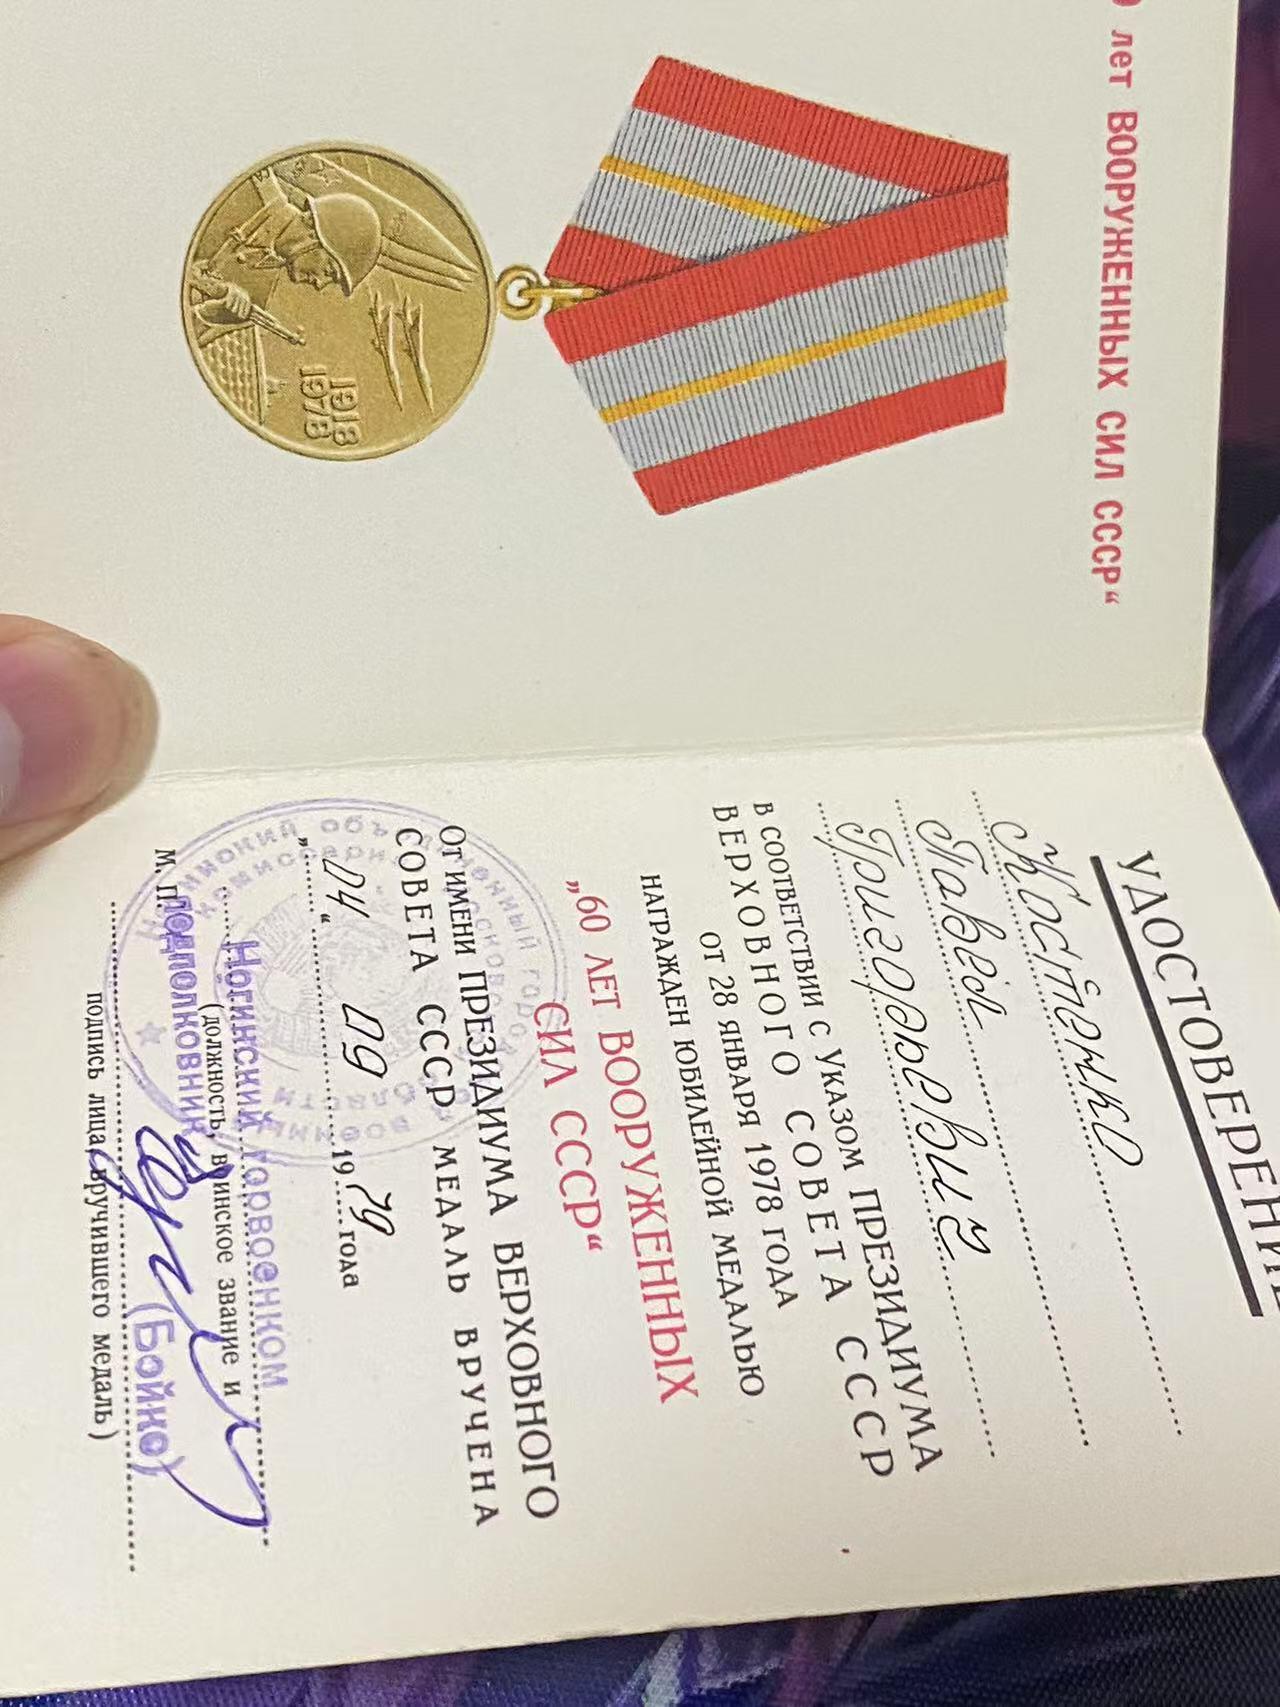 лет ВООРУЖЕННЫХ СИЛ СССР“
1918
1978
УДОСТОВЕРЕНИЕ
Костенко
Павел
Григорьевич
В СООТВЕТСТВИИ С УКАЗОМ ПРЕЗИДИУМА
ВЕРХОВНОГО СОВЕТА СССР
ОТ 28 ЯНВАРЯ 1978 ГОДА
НАГРАЖДЕН ЮБИЛЕЙНОЙ МЕДАЛЬЮ
„60 ЛЕТ ВООРУЖЕННЫХ
СИЛ СССР“
От ИМЕНИ ПРЕЗИДИУМА ВЕРХОВНОГО
СОВЕТА СССР МЕДАЛЬ ВРУЧЕНА
„04“ 09 1979 года
Ногинский горвоенком
(должность, воинское звание и
М. П. подполковник (Бойко)
подпись лица, вручившего медаль)